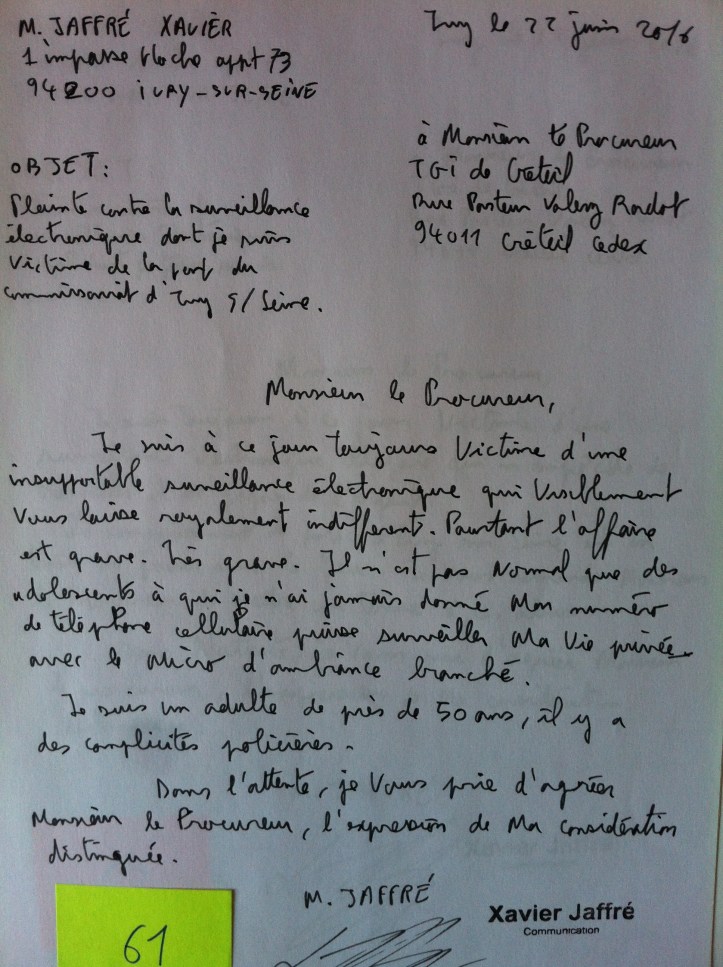 M. JAFFRÉ XAVIER
1 impasse Hoche appt 73
94200 IVRY-SUR-SEINE
Ivry le 22 juin 2016
à Monsieur le Procureur
TGI de Créteil
Rue Pasteur Valery Radot
94011 Créteil cedex
OBJET:
Plainte contre la surveillance
électronique dont je suis
victime de la part du
commissariat d'Ivry S/Seine.
Monsieur le Procureur,
Je suis à ce jour toujours victime d'une
insupportable surveillance électronique qui visiblement
vous laisse royalement indifférent. Pourtant l'affaire
est grave. Très grave. Il n'est pas normal que des
adolescents à qui je n'ai jamais donné mon numéro
de téléphone cellulaire puisse surveiller ma vie privée
avec le micro d'ambiance branché.
Je suis un adulte de près de 50 ans, il y a
des complicités policières.
Dans l'attente, je vous prie d'agréer
Monsieur le Procureur, l'expression de ma considération
distinguée.
M. JAFFRÉ
Xavier Jaffré
Communication
61